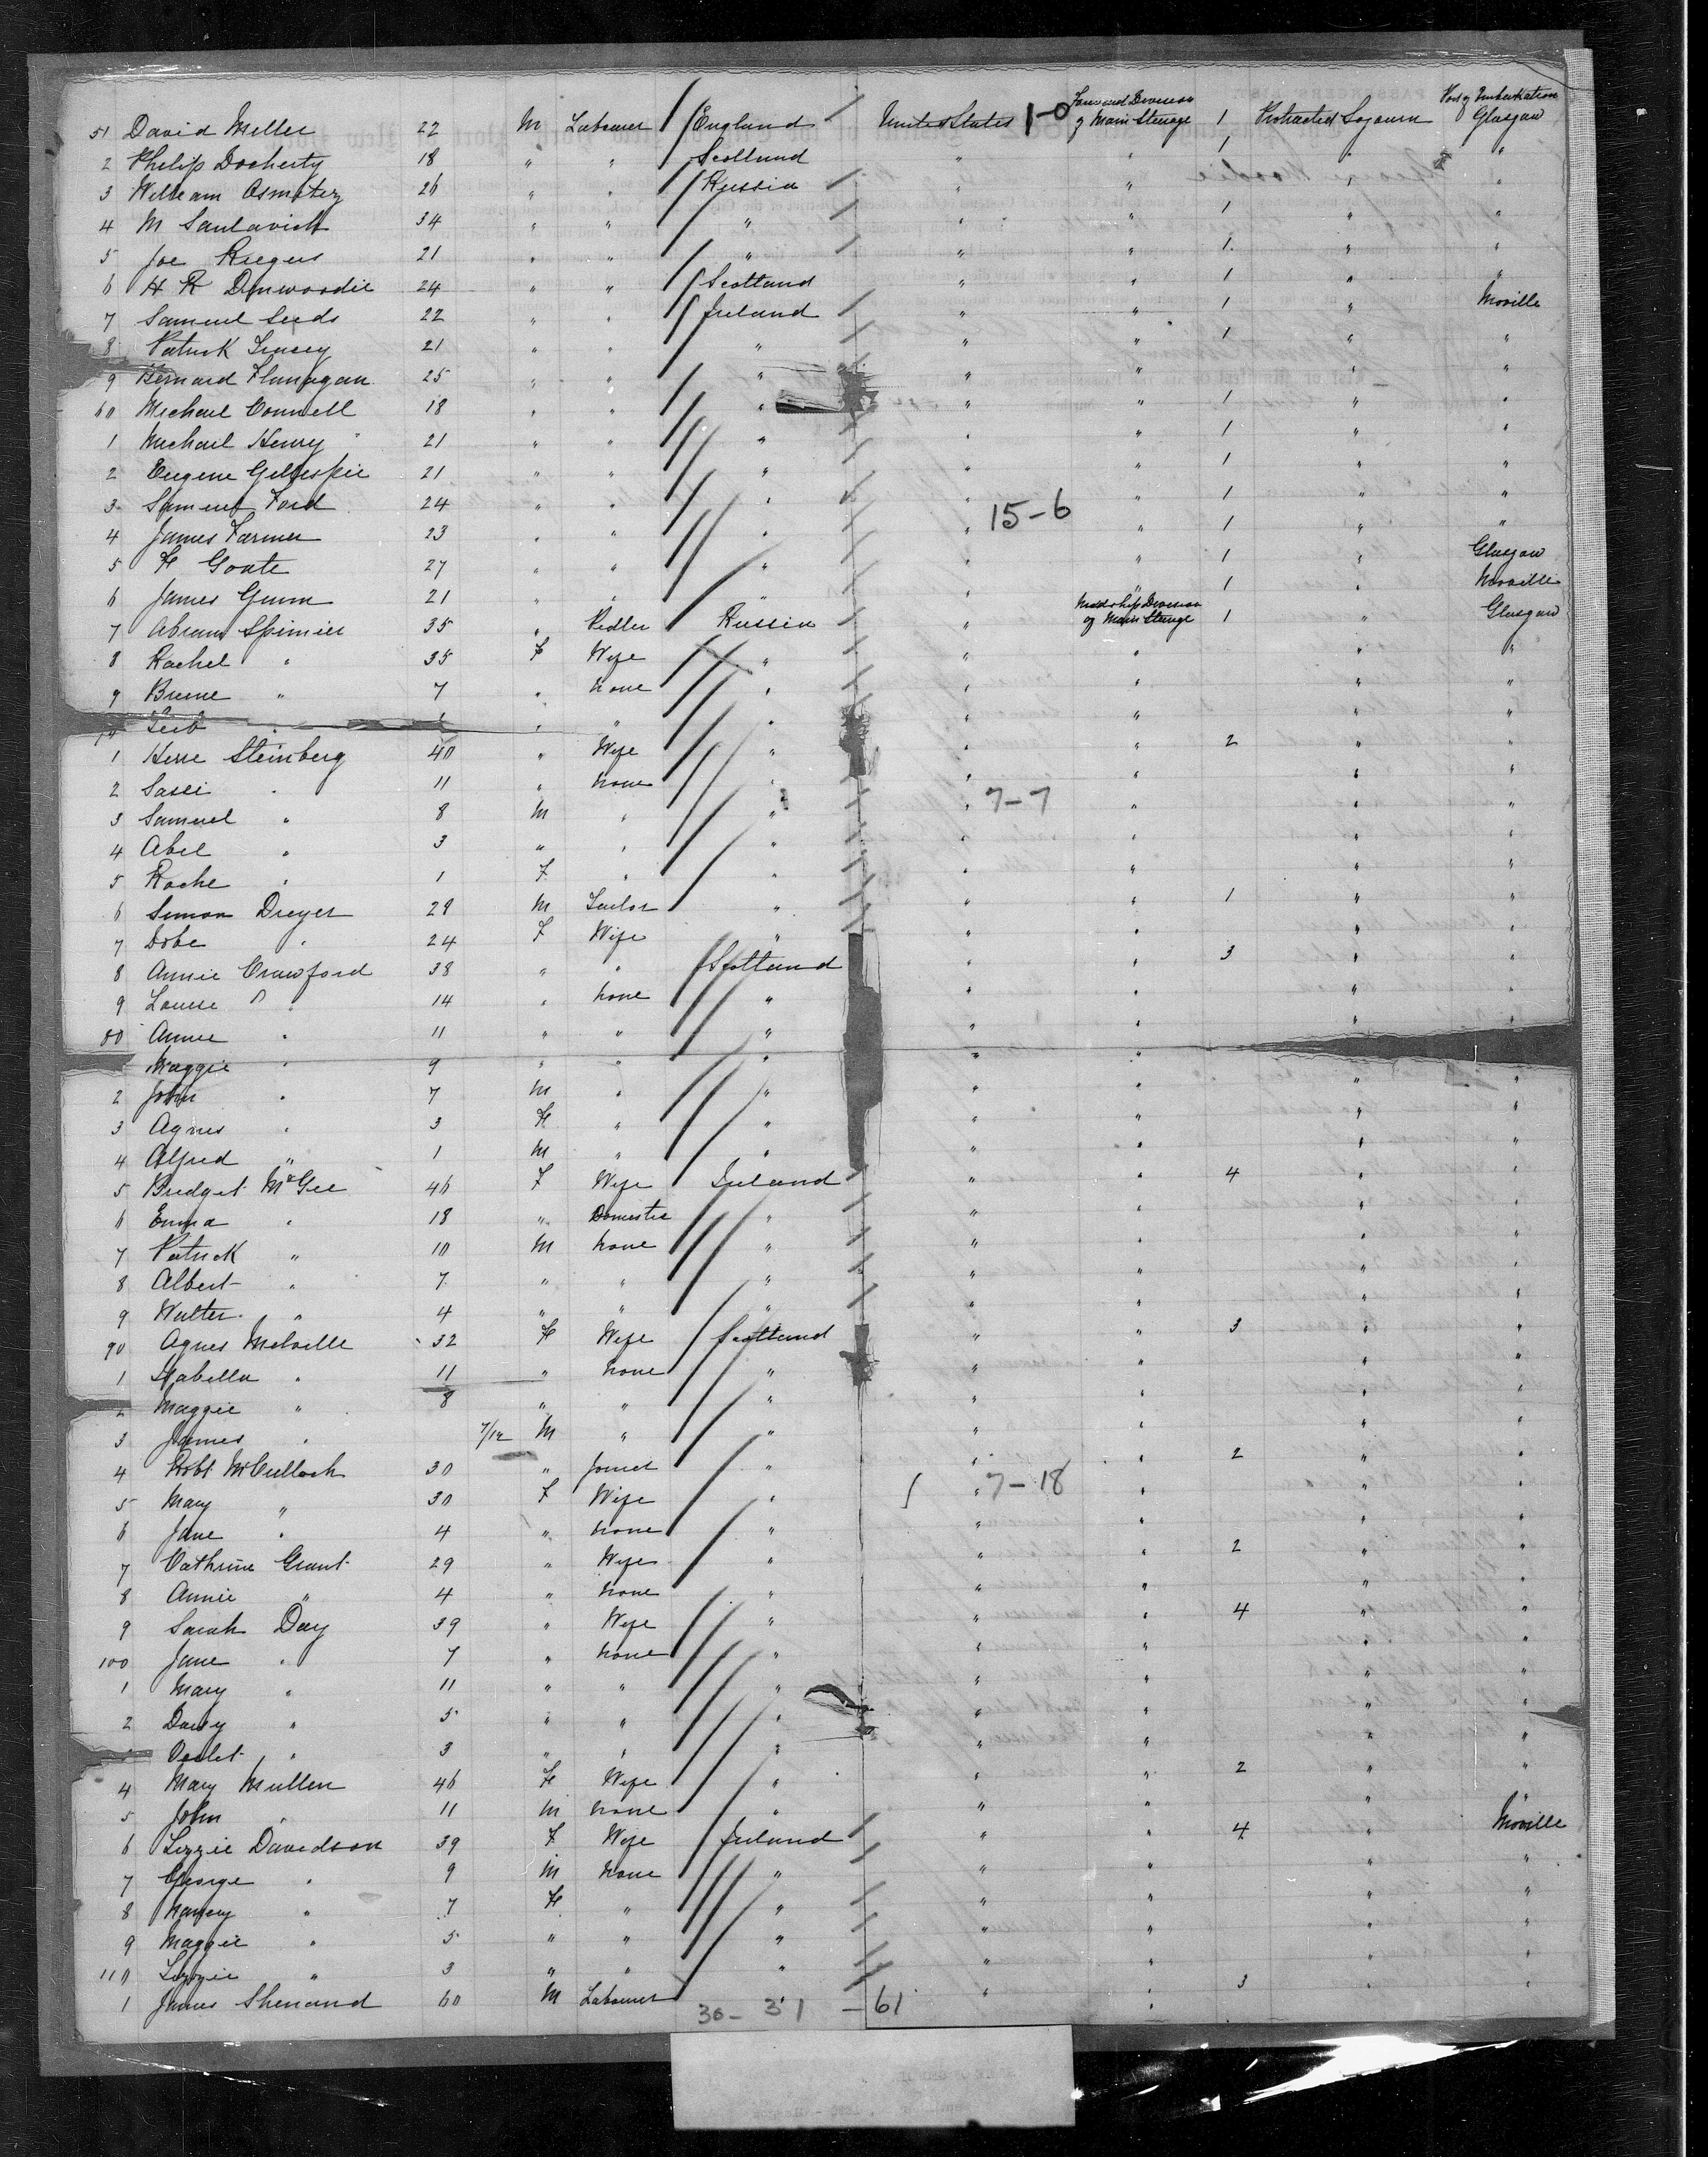 51 David Miller 22 M Labourer England United States 1-0 Forward Division of Main Steerage 1 Protracted Sojourn Port of Embarkation Glasgow
2 Philip Docherty 18 " " Scotland " " 1 " "
3 William 26 " " Russia " " 1 "
4 M 34 " " " " " 1 " "
5 Joe 21 " " " " " 1 " "
6 H R Dinwoodie 24 " " Scotland " " 1 " "
7 Samuel Seeds 22 " " Ireland " " 1 " Moville
8 Patrick 21 " " " " " 1 " "
9 Bernard Flanagan 25 " " " " " "
60 Michael Connell 18 " " " " " 1 " "
1 Michail Henry 21 " " " " " 1 " "
2 Eugene Gillespie 21 " " " " " 1 " "
3 Samuel Ford 24 " " " " 15-6 " 1 " "
4 James Farmer 23 " " " " " 1 " "
5 H 27 " " " " " 1 " Glasgow
6 James Gunn 21 " " " " " 1 " Moville
7 Abram 35 " Pedler Russia " Midship Division of Main Steerage 1 " Glasgow
8 Rachel " 35 F Wife " " " " "
9 " 7 " None " " " " "
70 Leib " " " " " " "
1 Steinberg 40 " Wife " " " 2 " "
2 " 11 " None " " " " "
3 Samuel " 8 M " " " 7-7 " " "
4 Abel " 3 " " " " " " "
5 Roche " 1 F " " " " " "
6 Simon Dreyer 29 M Tailor " " " 1 " "
7 Dobe " 24 F Wife " " " " "
8 Annie Crawford 38 " " Scotland " " 3 " "
9 Louise " 14 " None " " " " "
80 Annie " 11 " " " " " " "
Maggie " 9 " " " " "
2 John " 7 M " " " " " "
3 Agnes " 3 F " " " " " "
4 Alfred " 1 M " " " " " "
5 Bridget McGee 46 F Wife Ireland " " 4 " "
6 Emma " 18 " Domestic " " " " "
7 Patrick " 10 M None " " " " "
8 Albert " 7 " " " " " " "
9 Walter " 4 " " " " " " "
90 Agnes Melville 32 F Wife Scotland " " 3 " "
1 Isabella " 11 " None " " " " "
2 Maggie " 8 " " " " " " "
3 James " 7/12 M " " " " " "
4 Robt McCulloch 30 " Joiner " " " 2 " "
5 Mary " 30 F Wife " " 7-18 " " "
6 Jane " 4 " None " " " " "
7 Cathrine Grant 29 " Wife " " " 2 " "
8 Annie " 4 " None " " " " "
9 Sarah Day 39 " Wife " " " 4 " "
100 Jane " 7 " None " " " " "
1 Mary " 11 " " " " " " "
2 Davy " 5 " " " " " " "
Violet " 3 " " " " " " "
4 Mary Mullen 46 F Wife " " " 2 " "
5 John " 11 M None " " " " "
6 Lizzie Davidson 39 F Wife Ireland " " 4 " Moville
7 George " 9 M None " " " " "
8 Nancy " 7 F " " " " " "
9 Maggie " 5 " " " " " " "
110 Lizzie " 3 " " " " " " "
1 James 60 M Labourer " " 3 " "
30- 31 - 61